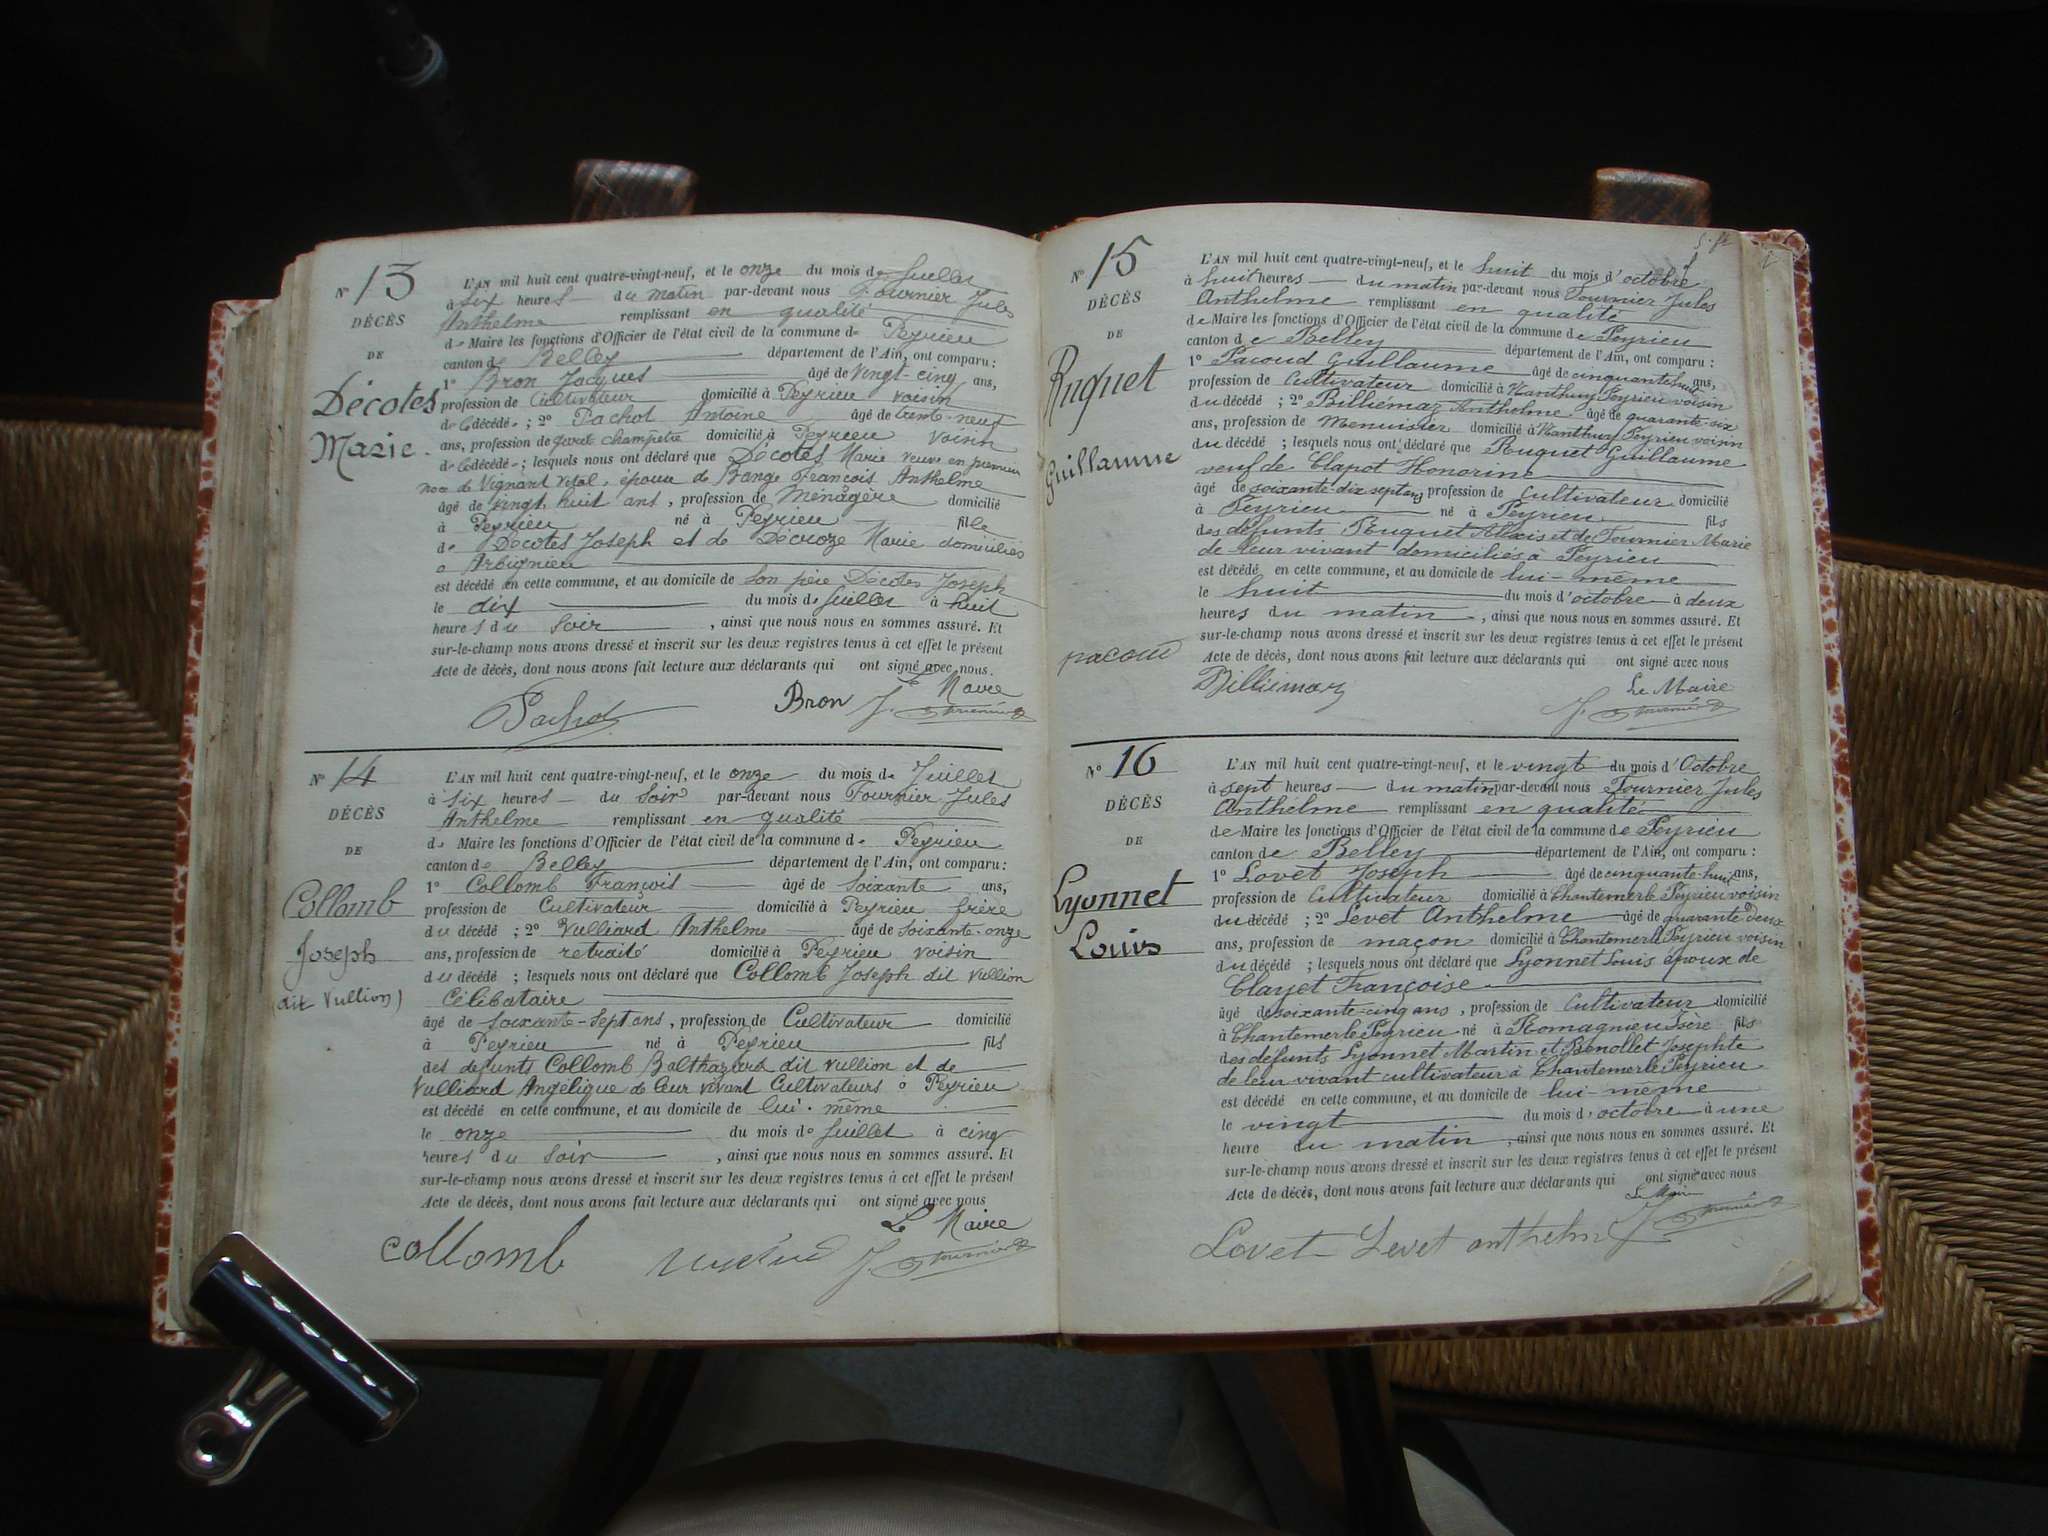 N° 13
DÉCÈS
DE
Décotes
Marie
L'AN mil huit cent quatre-vingt-neuf, et le onze du mois de Juillet
à six heures du matin par-devant nous Fournier Jules
Anthelme remplissant en qualité
de Maire les fonctions d'Officier de l'état civil de la commune de Peyrieu
canton de Belley département de l'Ain, ont comparu :
1° Bron Jacques âgé de vingt-cinq ans,
profession de Cultivateur domicilié à Peyrieu voisin
de la décédée ; 2° Pachot Antoine âgé de trente-neuf
ans, profession de garde champêtre domicilié à Peyrieu voisin
de la décédée ; lesquels nous ont déclaré que Décotes Marie veuve en premier
noce de Vignant Vital, épouse de Bange François Anthelme
âgé de vingt huit ans, profession de Ménagère domicilié
à Peyrieu né à Peyrieu fille
de Décotes Joseph et de Décroze Marie domiciliés
à Arbignieu
est décédé en cette commune, et au domicile de son père Décotes Joseph
le dix du mois de Juillet à huit
heures du soir, ainsi que nous nous en sommes assuré. Et
sur-le-champ nous avons dressé et inscrit sur les deux registres tenus à cet effet le présent
Acte de décès, dont nous avons fait lecture aux déclarants qui ont signé avec nous.
Le Maire
Pachot Bron J. Fournier
N° 14
DÉCÈS
DE
Collomb
Joseph
(dit Vullion)
L'AN mil huit cent quatre-vingt-neuf, et le onze du mois de Juillet
à six heures du soir par-devant nous Fournier Jules
Anthelme remplissant en qualité
de Maire les fonctions d'Officier de l'état civil de la commune de Peyrieu
canton de Belley département de l'Ain, ont comparu :
1° Collomb François âgé de soixante ans,
profession de Cultivateur domicilié à Peyrieu frère
du décédé ; 2° Vulliard Anthelme âgé de soixante-onze
ans, profession de retraité domicilié à Peyrieu voisin
du décédé ; lesquels nous ont déclaré que Collomb Joseph dit Vullion
Célibataire
âgé de soixante-sept ans, profession de Cultivateur domicilié
à Peyrieu né à Peyrieu fils
des défunts Collomb Balthazard dit Vullion et de
Vulliard Angélique de leur vivant Cultivateurs à Peyrieu
est décédé en cette commune, et au domicile de lui-même
le onze du mois de Juillet à cinq
heures du soir, ainsi que nous nous en sommes assuré. Et
sur-le-champ nous avons dressé et inscrit sur les deux registres tenus à cet effet le présent
Acte de décès, dont nous avons fait lecture aux déclarants qui ont signé avec nous
Le Maire
collomb J. Fournier
N° 15
DÉCÈS
DE
Ruguet
Guillaume
L'AN mil huit cent quatre-vingt-neuf, et le huit du mois d'octobre
à huit heures du matin par-devant nous Fournier Jules
Anthelme remplissant en qualité
de Maire les fonctions d'Officier de l'état civil de la commune de Peyrieu
canton de Belley département de l'Ain, ont comparu :
1° Pacoud Guillaume âgé de cinquante huit ans,
profession de Cultivateur domicilié à Nanthuy Peyrieu voisin
du décédé ; 2° Billiémaz Anthelme âgé de quarante-six
ans, profession de Menuisier domicilié à Nanthuy Peyrieu voisin
du décédé ; lesquels nous ont déclaré que Ruguet Guillaume
veuf de Clapot Honorine
âgé de soixante-dix sept ans, profession de Cultivateur domicilié
à Peyrieu né à Peyrieu fils
des défunts Ruguet Alexis et de Fournier Marie
de leur vivant domiciliés à Peyrieu
est décédé en cette commune, et au domicile de lui-même
le huit du mois d'octobre à deux
heures du matin, ainsi que nous nous en sommes assuré. Et
sur-le-champ nous avons dressé et inscrit sur les deux registres tenus à cet effet le présent
Acte de décès, dont nous avons fait lecture aux déclarants qui ont signé avec nous
pacoud Billiemaz Le Maire
J. Fournier
N° 16
DÉCÈS
DE
Lyonnet
Louis
L'AN mil huit cent quatre-vingt-neuf, et le vingt du mois d'Octobre
à sept heures du matin par-devant nous Fournier Jules
Anthelme remplissant en qualité
de Maire les fonctions d'Officier de l'état civil de la commune de Peyrieu
canton de Belley département de l'Ain, ont comparu :
1° Lovet Joseph âgé de cinquante-huit ans,
profession de Cultivateur domicilié à Chantemerle Peyrieu voisin
du décédé ; 2° Levet Anthelme âgé de quarante deux
ans, profession de maçon domicilié à Chantemerle Peyrieu voisin
du décédé ; lesquels nous ont déclaré que Lyonnet Louis époux de
Clayet Françoise
âgé de soixante-cinq ans, profession de Cultivateur domicilié
à Chantemerle Peyrieu né à Romagnieu Isère fils
des défunts Lyonnet Martin et Benollet Josephte
de leur vivant cultivateur à Chantemerle Peyrieu
est décédé en cette commune, et au domicile de lui-même
le vingt du mois d'octobre à une
heure du matin, ainsi que nous nous en sommes assuré. Et
sur-le-champ nous avons dressé et inscrit sur les deux registres tenus à cet effet le présent
Acte de décès, dont nous avons fait lecture aux déclarants qui ont signé avec nous
Le Maire
Lovet Levet anthelm J. Fournier